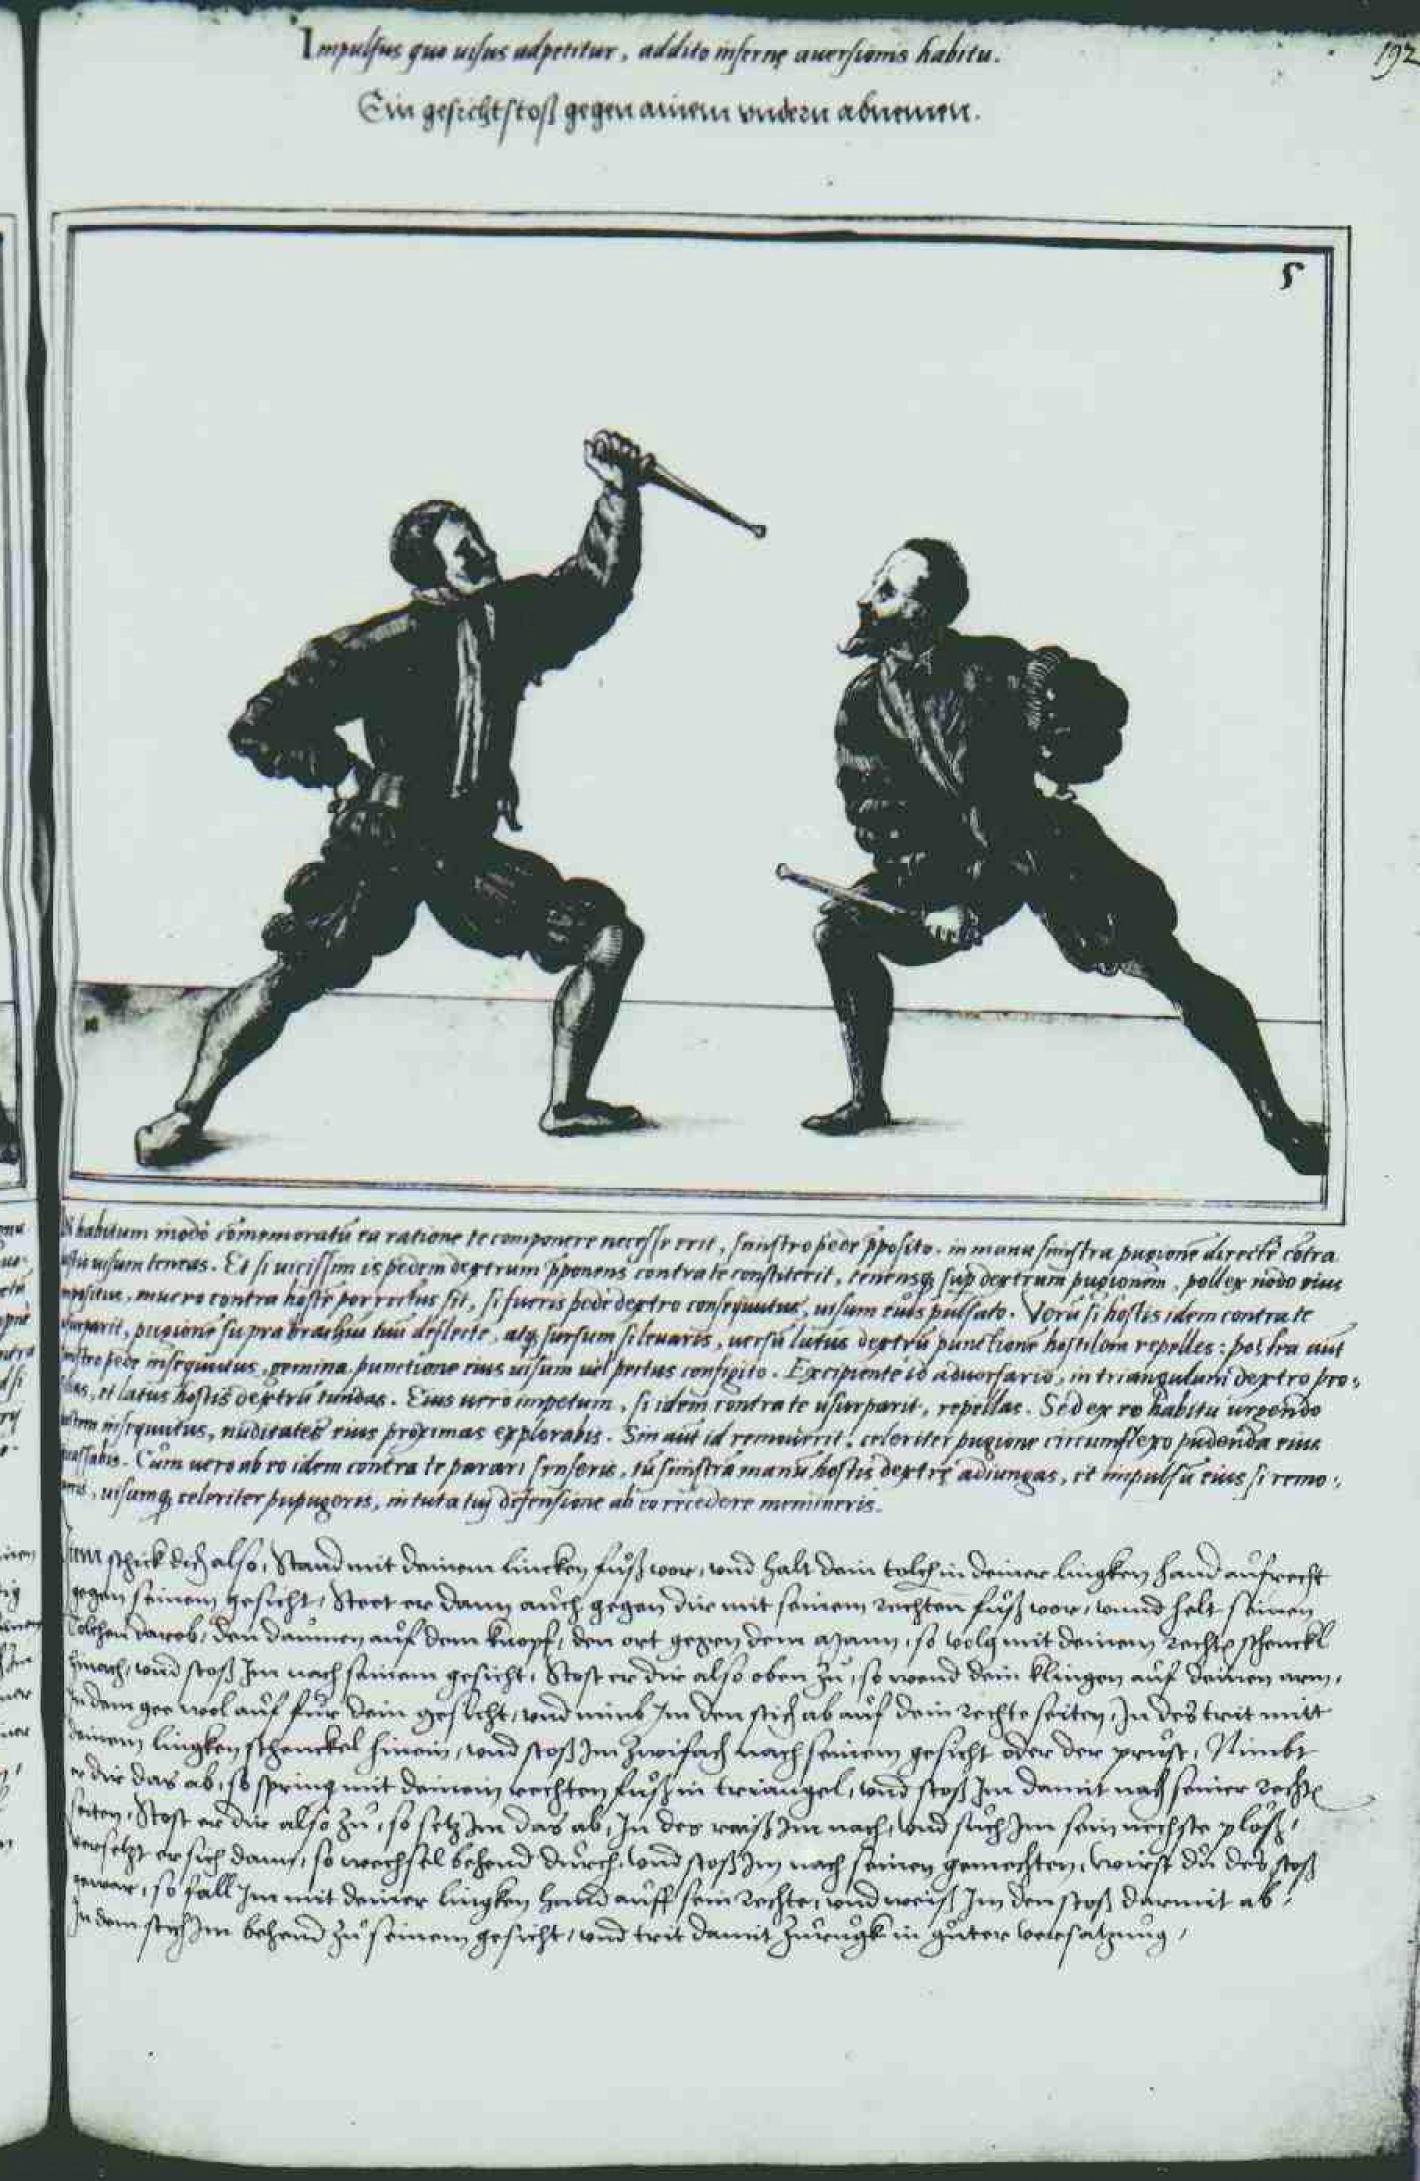 Impulsus quo uisus adpetitur, addito infernę auersionis habitu.
192
Ein gesichtstoß gegen ainem undern abnemen.
5
habitum modo comemoratu ea ratione te componere necesse erit, sinistro pede pposito, in manu sinistra pugione directe cotra
uisum teneas. Et si uicissim is pedem dextrum pponens contra te constiterit, tenensq sup dextrum pugionem, pollex nodo eius
mucro contra hoste porrectus sit, si fueris pede dextro consequutus, uisum eius pulsato. Veru si hostis idem contra te
pugione supra brachiu tuu deflecte, atq sursum si leuaris, uersu latus dextru punctione hostilem repelles: postea aut
pede insequutus, gemina punctione eius uisum uel pectus configito. Excipiente id aduersario, in triangulum dextro pro:,
et latus hostis dextru tundas. Eius uero impetum, si idem contra te usurparit, repellas. Sed ex eo habitu urgendo
insequutus, nuditates eius proximas explorabis. Sin aut id remouerit, celeriter pugione circumflexo pudenda eius
Cum uero ab eo idem contra te parari senseris, tu sinistra manu hostis dextrę adiungas, et impulsu eius si remo:,
uisumq celeriter pupugeris, in tuta tui defensione ab eo recedere memineris.
Item schick dich also, Stand mit deinem lincken fuß vor, und halt dein tolch in deiner lingken hand aufrecht
gegen seinem gesicht, Steet er dann auch gegen dir mit seinem rechten fuß vor, unnd helt seinen
Tolchen darob, den daumen auf dem knopf, den ort gegen dem Mann, so volg mit deinem rechte schenckl
hinach, und stoß Im nach seinem gesicht, Stost er dir also oben zu, so wend dein klingen auf deinen arm,
In dem gee wol auf für dein gesicht, und nimb Im den stich ab auf dein rechte seiten, In des trit mitt
deinem lingken schenckel hinein, und stoß Im zwifach nach seinem gesicht oder der prust, Nimbt
er dir das ab, so spring mit deinem rechten fuß in triangel, und stoß Im damit nach seiner rechte
seiten, Stost er dir also zu, so setz Im das ab, In des raiß Im nach, und such Im sein nechste plöß,
versetzt er sich dann, so wechsel behend durch, und stoß Im nach seinen gemechten, wirst du des stoß
gewar, so fall Im mit deiner lingken hand auff sein rechte, und weiß Im den stoß darmit ab,
In dem stich Im behend zu seinem gesicht, und trit damit zurugk in guter versatzung,